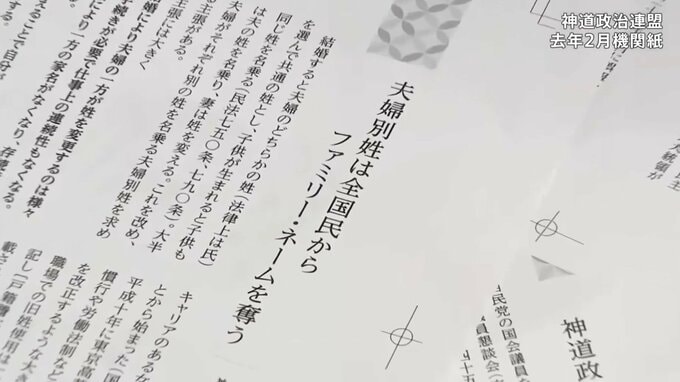 神道政治連盟
去年2月機関紙
夫婦別姓は全国民から
ファミリー・ネームを奪う
結婚すると夫婦のどちらかの姓（法律上は氏）
を選んで共通の姓とし、子供が生まれると子供も
同じ姓を名乗る（民法七五〇条、七九〇条）。大半
は夫の姓を名乗り、妻は姓を変える。これを改め、
夫婦がそれぞれ別の姓を名乗る夫婦別姓を求め
る主張がある。
主張には大きく
婚により夫婦の一方が姓を変更するのは様々
続きが必要で仕事上の連続性もなくなる。
により一方の家名がなくなり、存続
ことで自分が
キャリアのある女
とから始まった（国
平成十年に東京高
慣行や労働法制など
を改正するような大き
職場での旧姓使用は
記し［戸籍
載さ
民党の国会議員
員懇談会（
四十五
神道政
大統領が